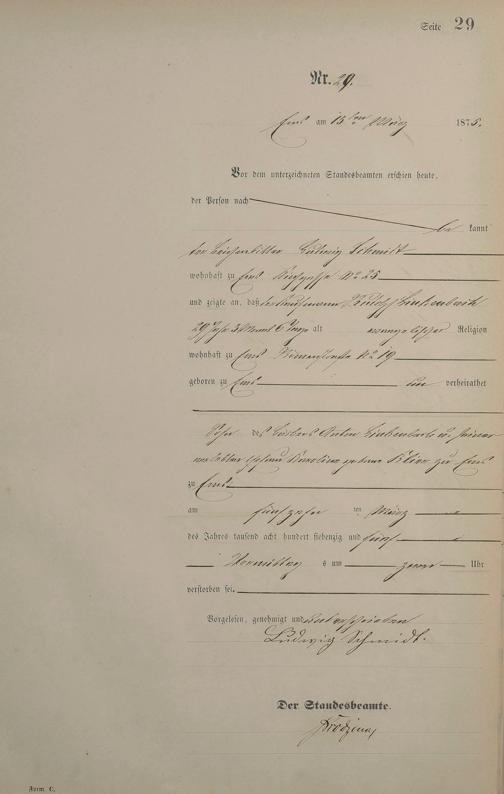 Seite 29
Nr. 29.
Ems am 15ten März 1875.
Vor dem unterzeichneten Standesbeamten erschien heute,
der Person nach
be kannt
der Leichenbitter Ludwig Schmidt
wohnhaft zu Ems No 25
und zeigte an, daß der Kaufmann Linkenbach
29 Jahr 3 Monat 6 Tage alt evangelischer Religion
wohnhaft zu Ems Römerstraße No 19
geboren zu Ems un verheirathet
Sohn des Anton Linkenbach u. seiner
Ehefrau Karoline geborene zu Ems
zu Ems
am fünfzehn ten März
des Jahres tausend acht hundert siebenzig und fünf
Vormittag s um Uhr
verstorben sei.
Vorgelesen, genehmigt und unterschrieben
Ludwig Schmidt.
Der Standesbeamte.
Form. C.